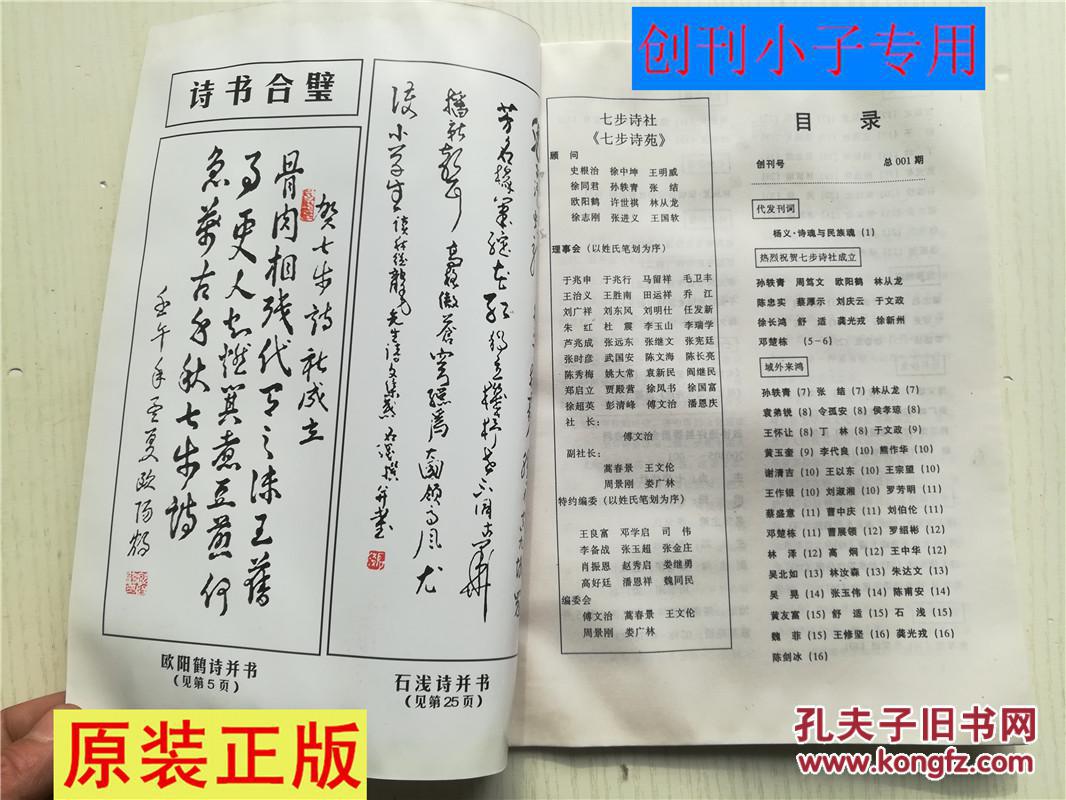 创刊小子专用
诗书合璧
贺七步诗社成立
骨肉相残代有之诛王旧
事更人知燃萁煮豆愈何
急万古千秋七步诗
壬午年孟夏欧阳鹤
欧阳鹤诗并书
（见第5页）
石浅诗并书
（见第25页）
七步诗社
《七步诗苑》
顾 问
史根治 徐中坤 王明威
徐同君 孙轶青 张 结
欧阳鹤 许世祺 林从龙
徐志刚 张进义 王国钦
理事会（以姓氏笔划为序）
于兆申 于兆行 马留祥 毛卫丰
王治义 王胜南 田运祥 乔 江
刘广祥 刘东风 刘明仕 任发新
朱 红 杜 震 李玉山 李瑞学
芦兆成 张远东 张继文 张宪廷
张时彦 武国安 陈文海 陈长亮
陈秀梅 姚大常 袁新民 阎继民
郑启立 贾殿营 徐凤书 徐国富
徐超英 彭清峰 傅文治 潘恩庆
社 长：
傅文治
副社长：
蒿春景 王文伦
周景刚 娄广林
特约编委（以姓氏笔划为序）
王良富 邓学启 司 伟
李备战 张玉超 张金庄
肖振恩 赵秀启 娄继勇
高好廷 潘恩祥 魏同民
编委会
傅文治 蒿春景 王文伦
周景刚 娄广林
目 录
创刊号 总 001 期
代发刊词
杨义·诗魂与民族魂（1）
热烈祝贺七步诗社成立
孙轶青 周笃文 欧阳鹤 林从龙
陈忠实 蔡厚示 刘庆云 于文政
徐长鸿 舒 适 龚光戎 徐新州
邓楚栋 （5-6）
域外来鸿
孙轶青（7）张 结（7）林从龙（7）
袁弟锐（8）令孤安（8）侯孝琼（8）
王怀让（8）丁 林（8）于文政（9）
黄玉奎（9）李代良（10）熊作华（10）
谢清吉（10）王以东（10）王宗望（10）
王作银（10）刘淑湘（10）罗芳明（11）
蔡盛意（11）曹中庆（11）刘伯伦（11）
邓楚栋（11）曹展领（12）罗绍彬（12）
林 泽（12）高 炯（12）王中华（12）
吴北如（13）林汝森（13）朱达文（13）
吴 晃（14）张玉伟（14）陈甫安（14）
黄友富（15）舒 适（15）石 浅（15）
魏 菲（15）王修坚（16）龚光戎（16）
陈剑冰（16）
原装正版
孔夫子旧书网
www.kongfz.com